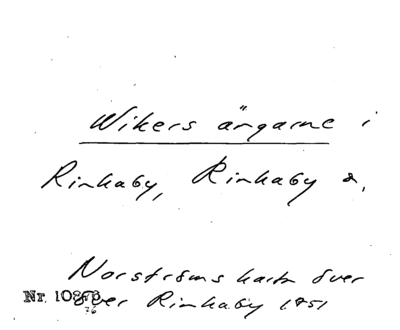 Wikers ängarne i
Rinkaby, Rinkaby s.
Norströms karta över
Nr. 10878 över Rinkaby 1851
76